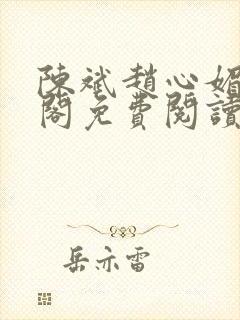 陳斌趙心媚
閣免費閱讀
岳亦雷